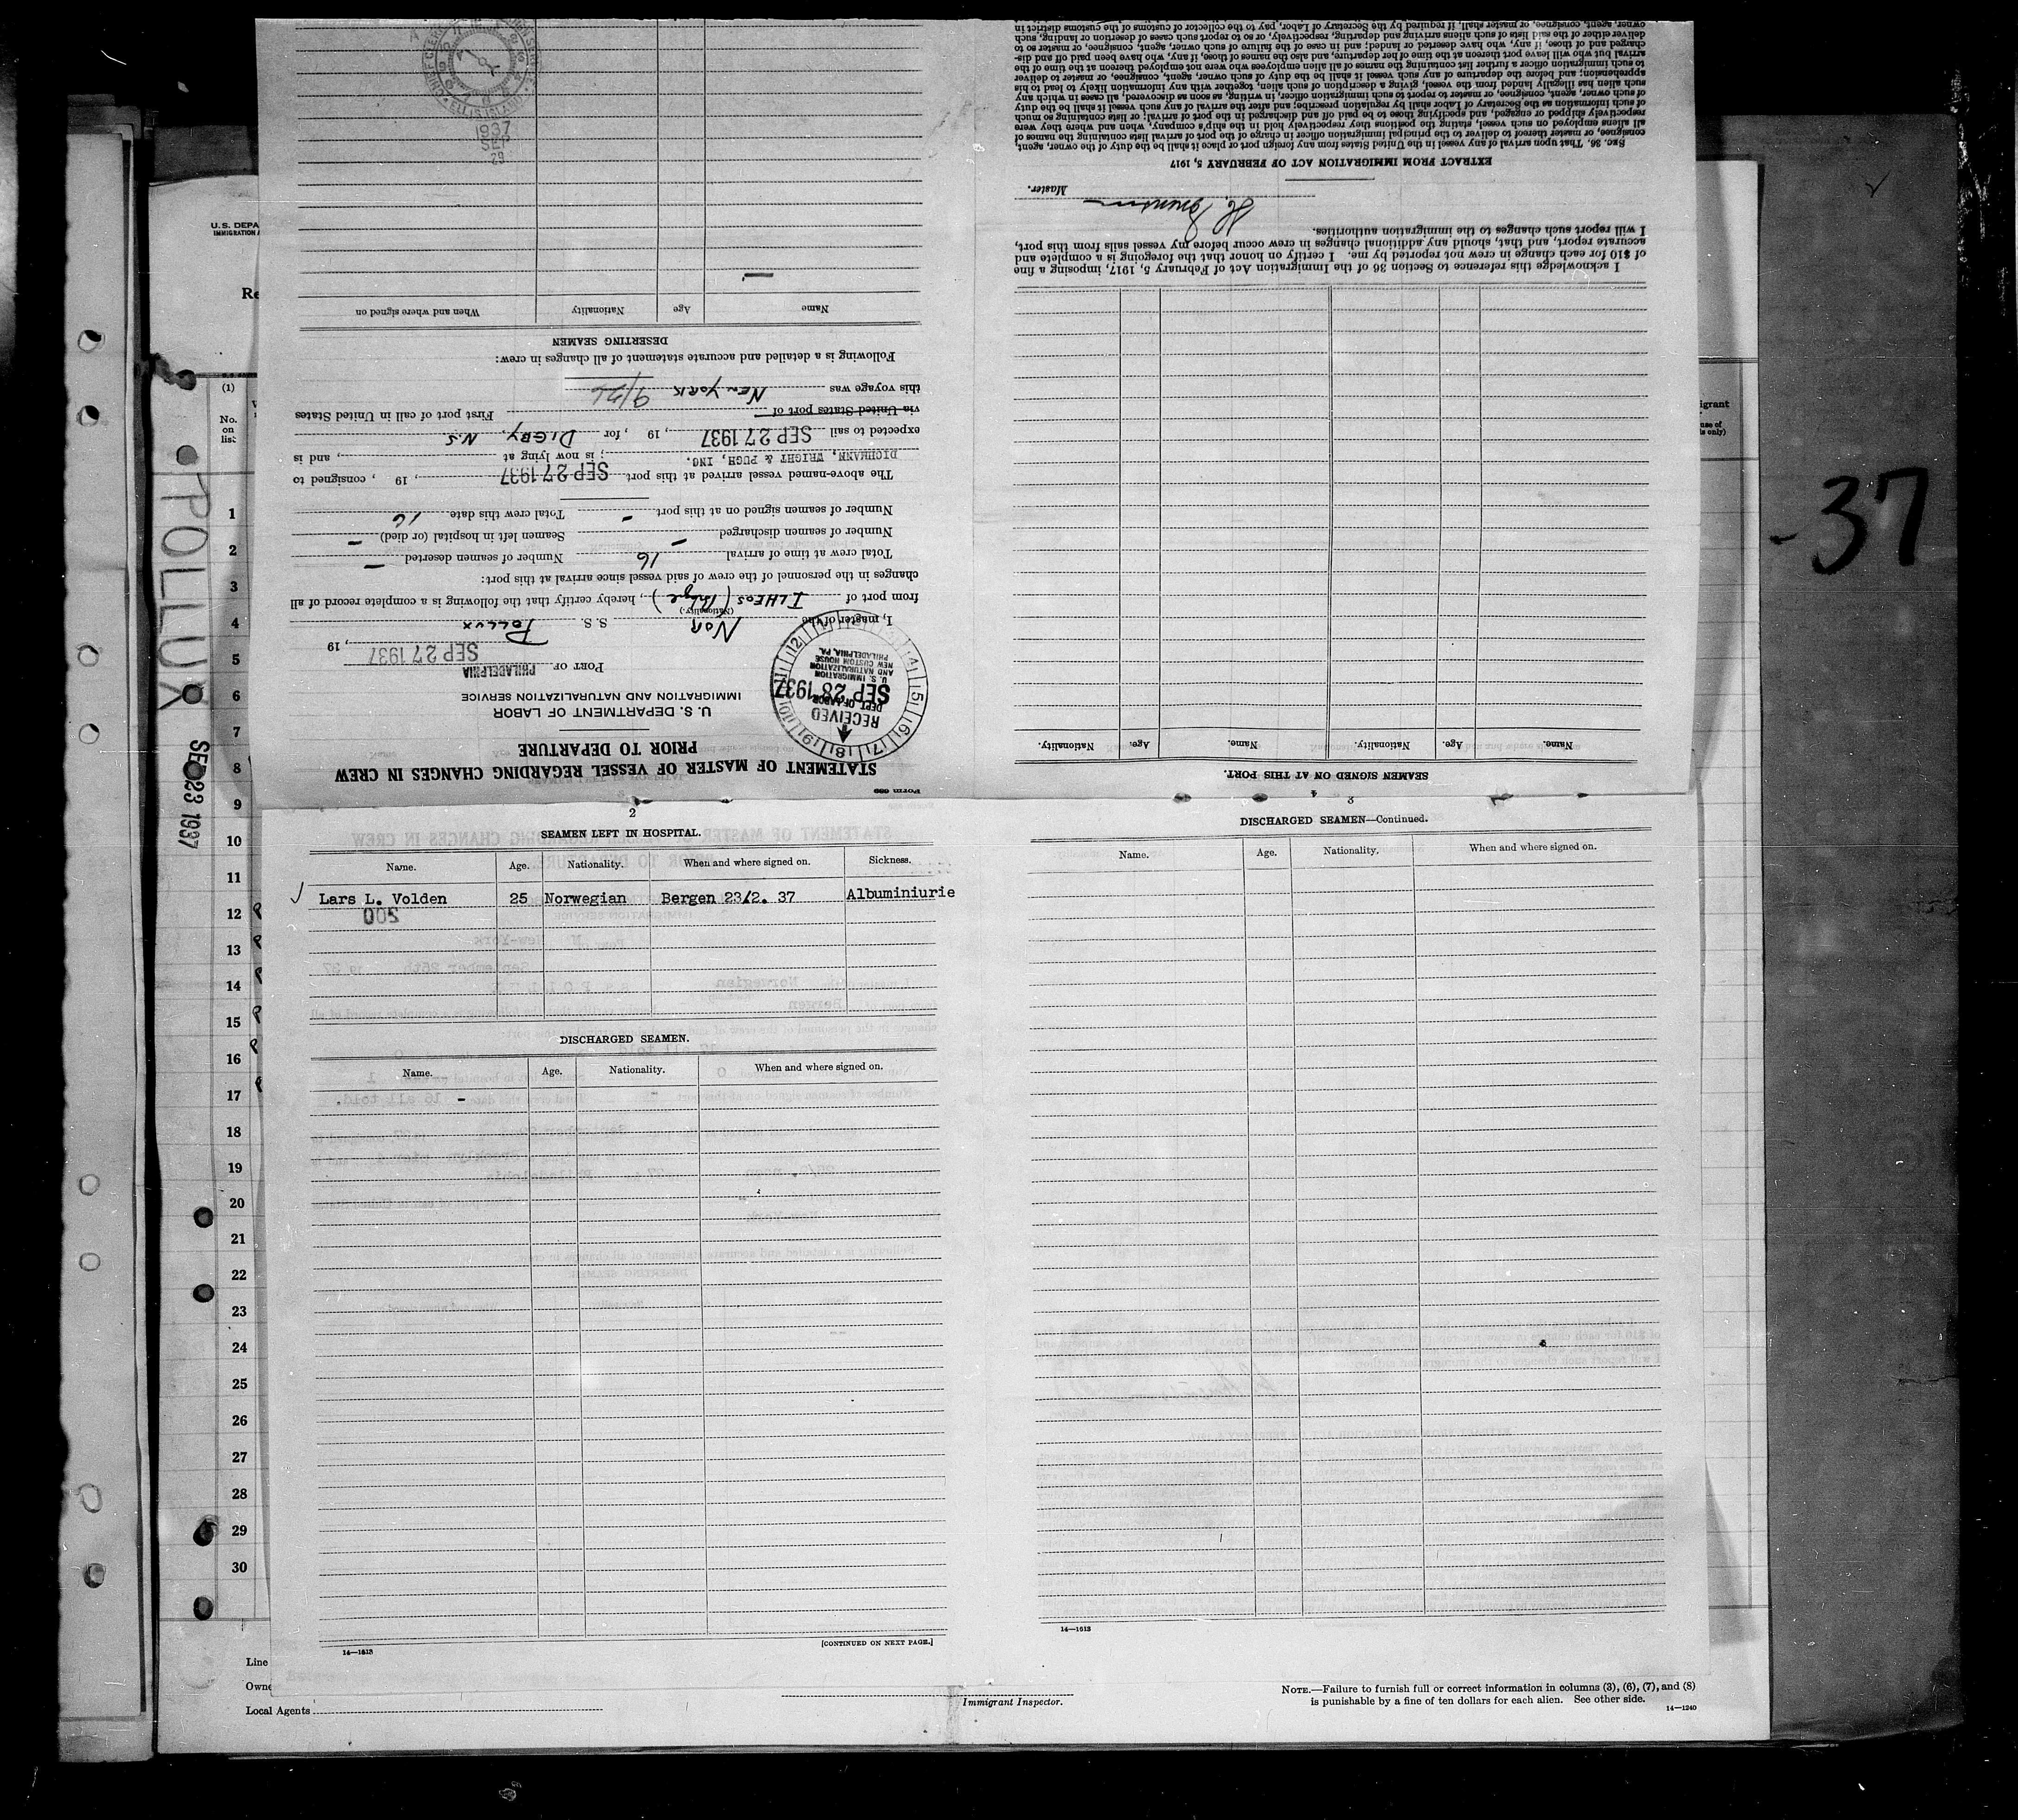 Form 689
STATEMENT OF MASTER OF VESSEL REGARDING CHANGES IN CREW
PRIOR TO DEPARTURE
U. S. DEPARTMENT OF LABOR
IMMIGRATION AND NATURALIZATION SERVICE
RECEIVED
DEPT. OF LABOR
SEP 28 1937
U. S. IMMIGRATION
AND NATURALIZATION
NEW CUSTOM HOUSE
PHILADELPHIA, PA.
PORT OF PHILADELPHIA
SEP 27 1937, 19
I, master of the Nor S. S. Pollux
(Nationality.)
from port of ILHEOS, hereby certify that the following is a complete record of all
changes in the personnel of the crew of said vessel since arrival at this port:
Total crew at time of arrival 16 Number of seamen deserted –
Number of seamen discharged – Seamen left in hospital (or died) –
Number of seamen signed on at this port – Total crew this date 16
The above-named vessel arrived at this port SEP 27 1937, 19 , consigned to
DICHMANN, WRIGHT & PUGH, INC. ; is now lying at , and is
expected to sail SEP 27 1937, 19 , for DIGBY, N.S.
via United States port of First port of call in United States
this voyage was NEW YORK 9/26
Following is a detailed and accurate statement of all changes in crew:
DESERTING SEAMEN
Name Age Nationality When and where signed on
—
1937
SEP
29
ELLIS ISLAND
SEAMEN SIGNED ON AT THIS PORT.
Name. Age. Nationality. Name. Age. Nationality.
I acknowledge this reference to Section 36 of the Immigration Act of February 5, 1917, imposing a fine
of $10 for each change in crew not reported by me. I certify on honor that the foregoing is a complete and
accurate report, and that, should any additional changes in crew occur before my vessel sails from this port,
I will report such changes to the immigration authorities.
Master.
EXTRACT FROM IMMIGRATION ACT OF FEBRUARY 5, 1917
SEC. 36. That upon arrival of any vessel in the United States from any foreign port or place it shall be the duty of the owner, agent,
consignee, or master thereof to deliver to the principal immigration officer in charge of the port of arrival lists containing the names of
all aliens employed on such vessel, stating the positions they respectively hold in the ship's company, when and where they were
respectively shipped or engaged, and specifying those to be paid off and discharged in the port of arrival; or lists containing so much
of such information as the Secretary of Labor shall by regulation prescribe; and after the arrival of any such vessel it shall be the duty
of such owner, agent, consignee, or master to report to such immigration officer, in writing, as soon as discovered, all cases in which any
such alien has illegally landed from the vessel, giving a description of such alien, together with any information likely to lead to his
apprehension; and before the departure of any such vessel it shall be the duty of such owner, agent, consignee, or master to deliver
to such immigration officer a further list containing the names of all alien employees who were not employed thereon at the time of the
arrival but who will leave port thereon at the time of her departure, and also the names of those, if any, who have been paid off and dis-
charged and of those, if any, who have deserted or landed; and in case of the failure of such owner, agent, consignee, or master so to
deliver either of the said lists of such aliens arriving and departing, respectively, or so to report such cases of desertion or landing, such
owner, agent, consignee, or master shall, if required by the Secretary of Labor, pay to the collector of customs of the customs district in
2
SEAMEN LEFT IN HOSPITAL.
Name. Age. Nationality. When and where signed on. Sickness.
Lars L. Volden 25 Norwegian Bergen 23/2. 37 Albuminiurie
500
DISCHARGED SEAMEN.
Name. Age. Nationality. When and where signed on.
-
14—1613 [CONTINUED ON NEXT PAGE.]
3
DISCHARGED SEAMEN—Continued.
Name. Age. Nationality. When and where signed on.
14—1613
U.S. DEPA
IMMIGRATION A
Re
(1)
No.
on
list
1
2
3
4
5
6
7
8
9
10
11
12
13
14
15
16
17
18
19
20
21
22
23
24
25
26
27
28
29
30
POLLUX
SEP 23 1937
-37
Line
Owne
Local Agents
Immigrant Inspector.
NOTE.—Failure to furnish full or correct information in columns (3), (6), (7), and (8)
is punishable by a fine of ten dollars for each alien. See other side.
14—1240